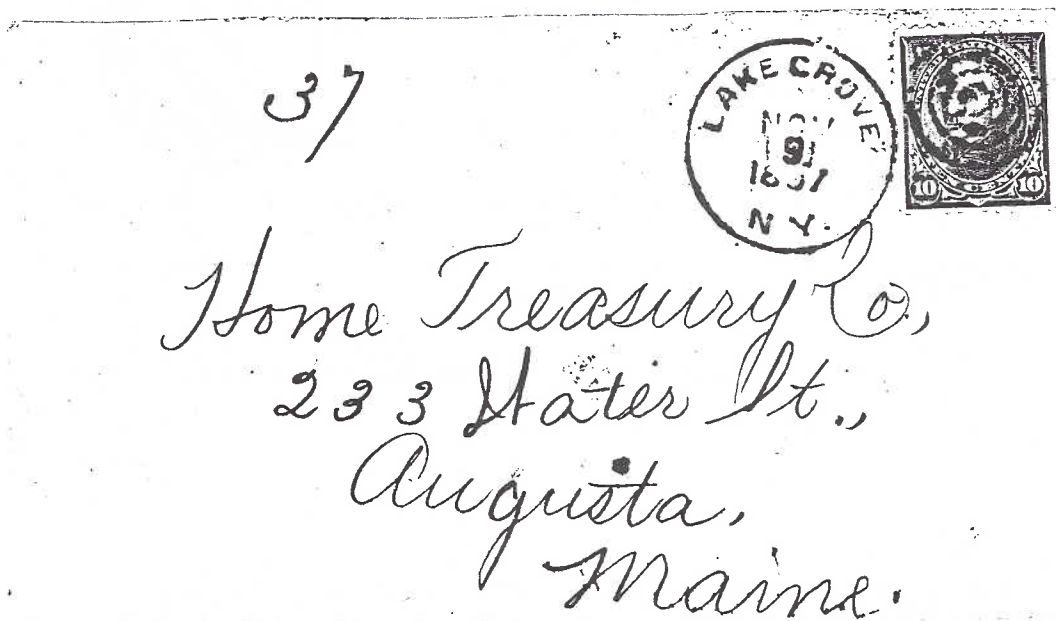 37
LAKE GROVE
NOV
9
1897
N Y.
10 10
Home Treasury Co.,
233 Water St.,
Augusta,
Maine.